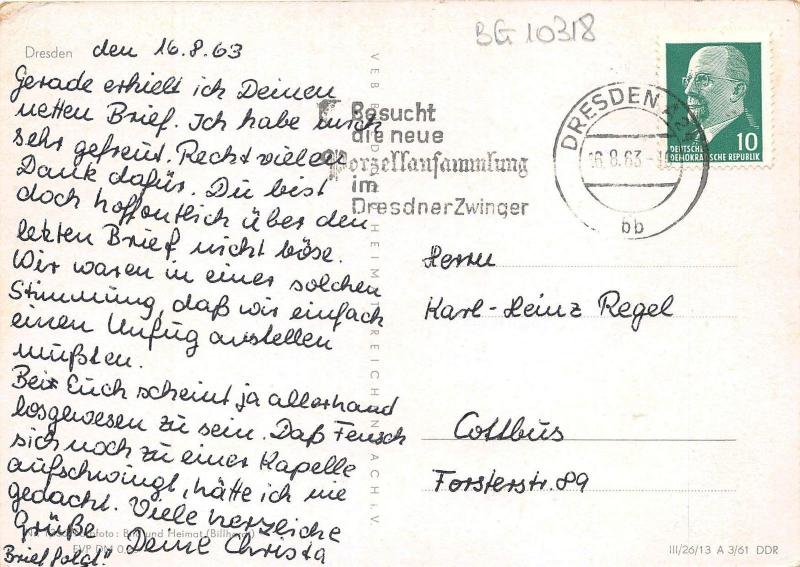 BG 10318
Dresden den 16.8.63
Gerade erhielt ich Deinen
netten Brief. Ich habe mich
sehr gefreut. Recht vielen
Dank dafür. Du bist
doch hoffentlich über den
letzten Brief nicht böse.
Wir waren in einer solchen
Stimmung, daß wir einfach
einen Unfug anstellen
mußten.
Bei Euch scheint ja allerhand
losgewesen zu sein. Daß Feusch
sich noch zu einer Kapelle
aufschwingt, hätte ich nie
gedacht. Viele herzliche
Grüße Deine Christa
Brief folgt!
Besucht
die neue
Porzellansammlung
im
Dresdner Zwinger
DRESDEN A
16.8.63
bb
10
DEUTSCHE
DEMOKRATISCHE REPUBLIK
Herrn
Karl-Heinz Regel
Cottbus
Forsterstr. 89
VEB BILD HEIMAT REICHENBACH i.V.
foto: Bild und Heimat
EVP DM
III/26/13 A 3/61 DDR